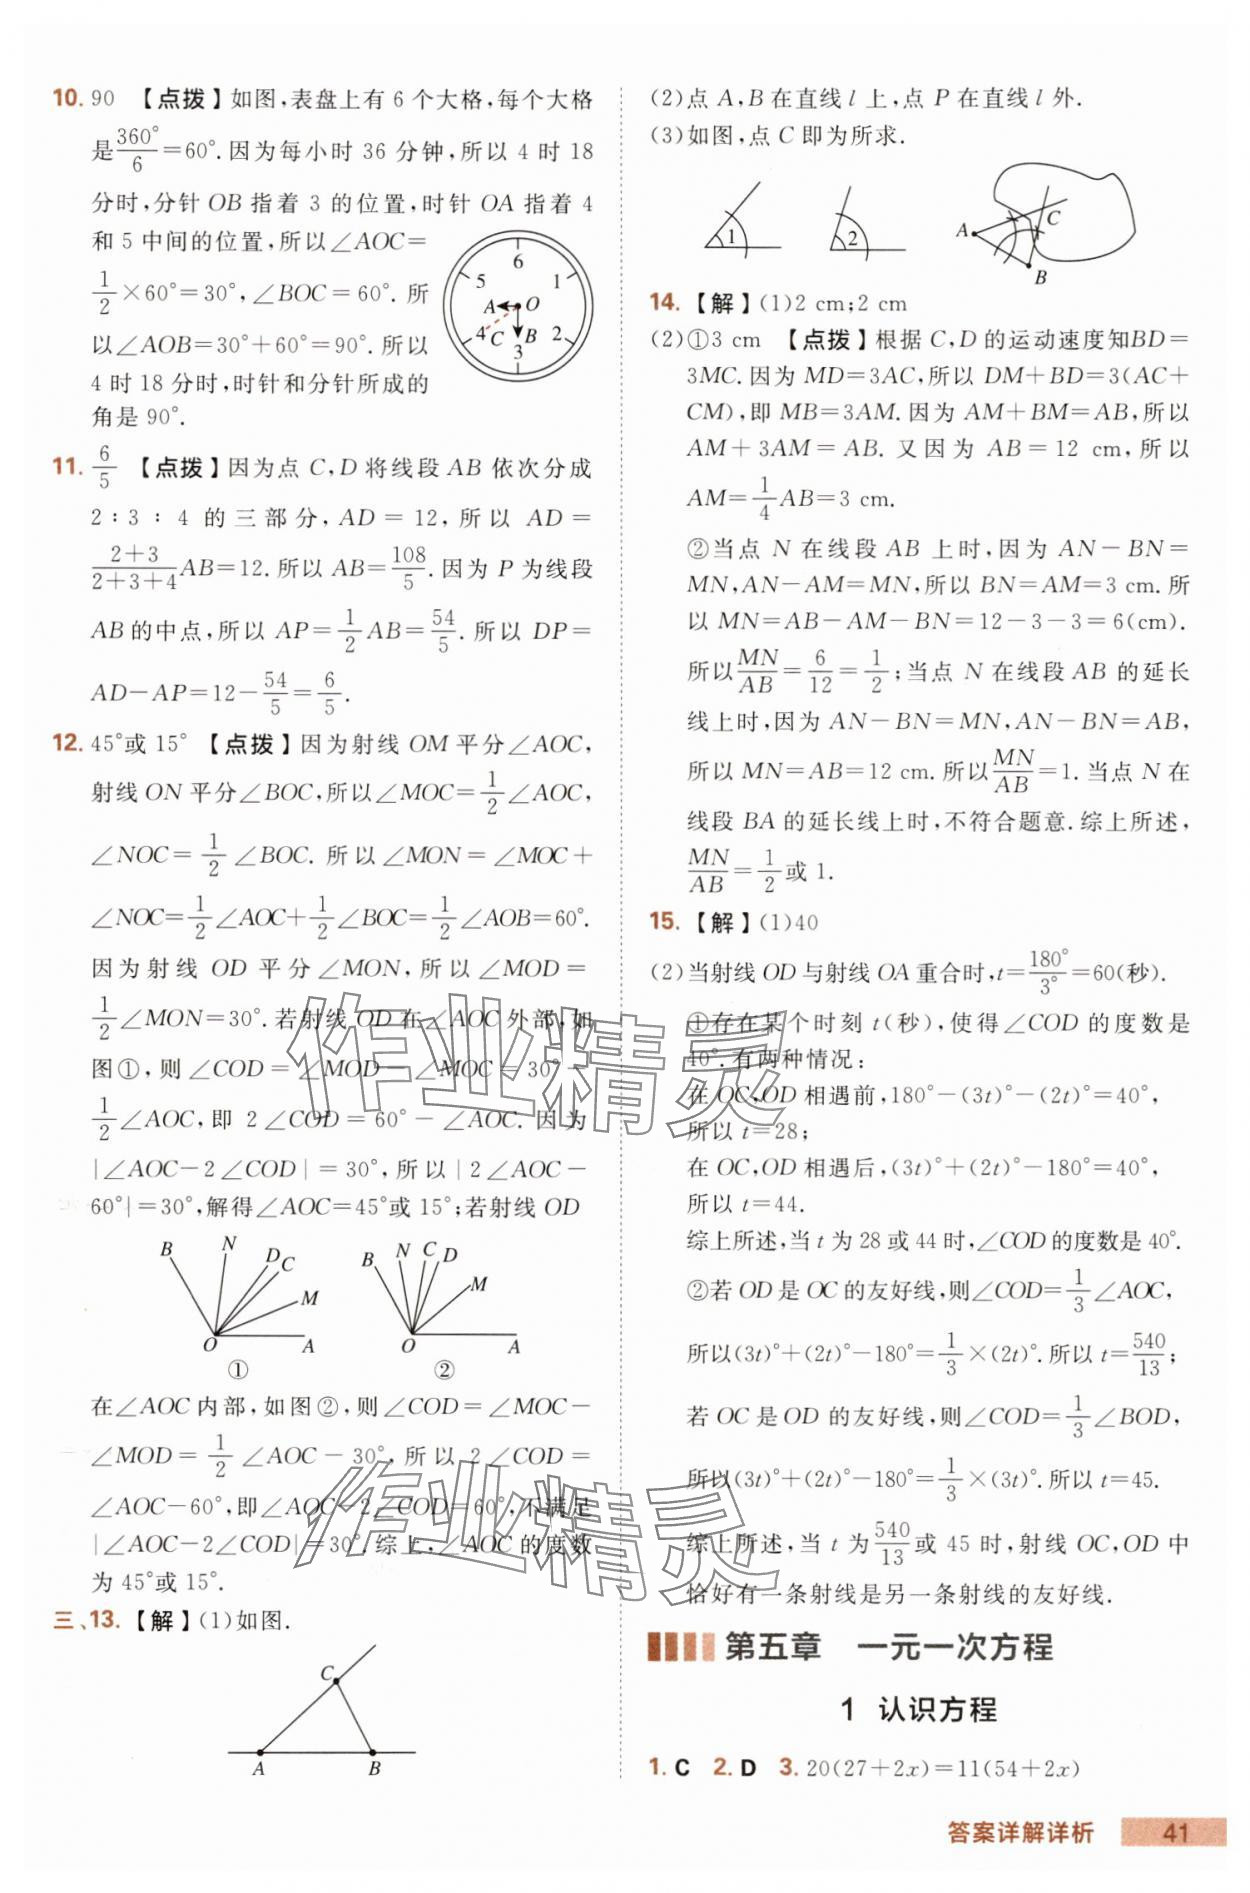 10. 90 【点拨】如图,表盘上有 6 个大格,每个大格
是360°/6=60°.因为每小时 36 分钟,所以 4 时 18
分时,分针 OB 指着 3 的位置,时针 OA 指着 4
和 5 中间的位置,所以∠AOC=
1/2×60°=30°,∠BOC=60°.所
以∠AOB=30°+60°=90°.所以
4 时 18 分时,时针和分针所成的
角是 90°.
6
5 1
A O
4 C B 2
3
11. 6/5 【点拨】因为点 C,D 将线段 AB 依次分成
2∶3∶4 的三部分,AD=12,所以 AD=
(2+3)/(2+3+4)AB=12.所以 AB=108/5.因为 P 为线段
AB 的中点,所以 AP=1/2AB=54/5.所以 DP=
AD-AP=12-54/5=6/5.
12. 45°或 15° 【点拨】因为射线 OM 平分∠AOC,
射线 ON 平分∠BOC,所以∠MOC=1/2∠AOC,
∠NOC=1/2∠BOC.所以∠MON=∠MOC+
∠NOC=1/2∠AOC+1/2∠BOC=1/2∠AOB=60°.
因为射线 OD 平分∠MON,所以∠MOD=
1/2∠MON=30°.若射线 OD 在∠AOC 外部,如
图①,则∠COD=∠MOD-∠MOC=30°-
1/2∠AOC,即 2∠COD=60°-∠AOC.因为
|∠AOC-2∠COD|=30°,所以|2∠AOC-
60°|=30°,解得∠AOC=45°或 15°;若射线 OD
B N D C M O A
①
B N C D M O A
②
在∠AOC 内部,如图②,则∠COD=∠MOC-
∠MOD=1/2∠AOC-30°,所以 2∠COD=
∠AOC-60°,即∠AOC-2∠COD=60°,不满足
|∠AOC-2∠COD|=30°.综上,∠AOC 的度数
为 45°或 15°.
三、13. 【解】(1)如图.
C
A B
(2)点 A,B 在直线 l 上,点 P 在直线 l 外.
(3)如图,点 C 即为所求.
1 2 A C B
14. 【解】(1)2 cm;2 cm
(2)①3 cm 【点拨】根据 C,D 的运动速度知BD=
3MC.因为 MD=3AC,所以 DM+BD=3(AC+
CM),即 MB=3AM.因为 AM+BM=AB,所以
AM+3AM=AB.又因为 AB=12 cm,所以
AM=1/4AB=3 cm.
②当点 N 在线段 AB 上时,因为 AN-BN=
MN,AN-AM=MN,所以 BN=AM=3 cm.所
以 MN=AB-AM-BN=12-3-3=6(cm).
所以MN/AB=6/12=1/2;当点 N 在线段 AB 的延长
线上时,因为 AN-BN=MN,AN-BN=AB,
所以 MN=AB=12 cm.所以MN/AB=1.当点 N 在
线段 BA 的延长线上时,不符合题意.综上所述,
MN/AB=1/2或 1.
15. 【解】(1)40
(2)当射线 OD 与射线 OA 重合时,t=180°/3°=60(秒).
①存在某个时刻 t(秒),使得∠COD 的度数是
40°.有两种情况:
在 OC,OD 相遇前,180°-(3t)°-(2t)°=40°,
所以 t=28;
在 OC,OD 相遇后,(3t)°+(2t)°-180°=40°,
所以 t=44.
综上所述,当 t 为 28 或 44 时,∠COD的度数是 40°.
②若 OD 是 OC 的友好线,则∠COD=1/3∠AOC,
所以(3t)°+(2t)°-180°=1/3×(2t)°.所以 t=540/13;
若 OC 是 OD 的友好线,则∠COD=1/3∠BOD,
所以(3t)°+(2t)°-180°=1/3×(3t)°.所以 t=45.
综上所述,当 t 为540/13或 45 时,射线 OC,OD 中
恰好有一条射线是另一条射线的友好线.
第五章 一元一次方程
1 认识方程
1. C 2. D 3. 20(27+2x)=11(54+2x)
答案详解详析 41
作业精灵
作业精灵